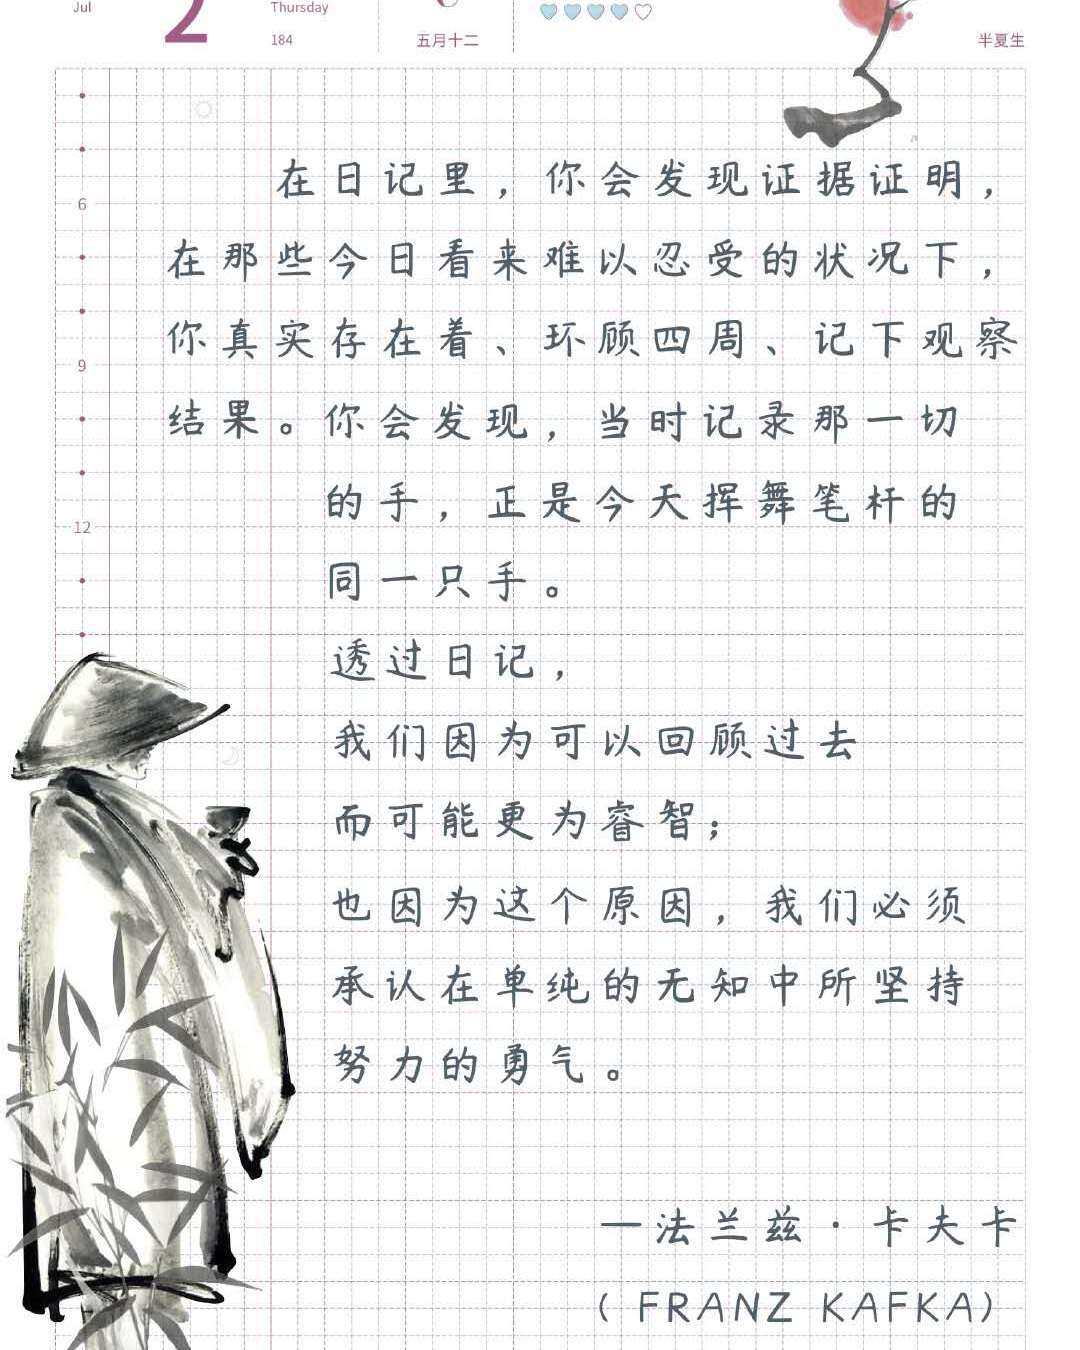 Jul 2 Thursday
184 五月十二 半夏生
在日记里，你会发现证据证明，
6
在那些今日看来难以忍受的状况下，
你真实存在着、环顾四周、记下观察
9
结果。你会发现，当时记录那一切
的手，正是今天挥舞笔杆的
12
同一只手。
透过日记，
我们因为可以回顾过去
而可能更为睿智；
也因为这个原因，我们必须
承认在单纯的无知中所坚持
努力的勇气。
—法兰兹·卡夫卡
（FRANZ KAFKA）